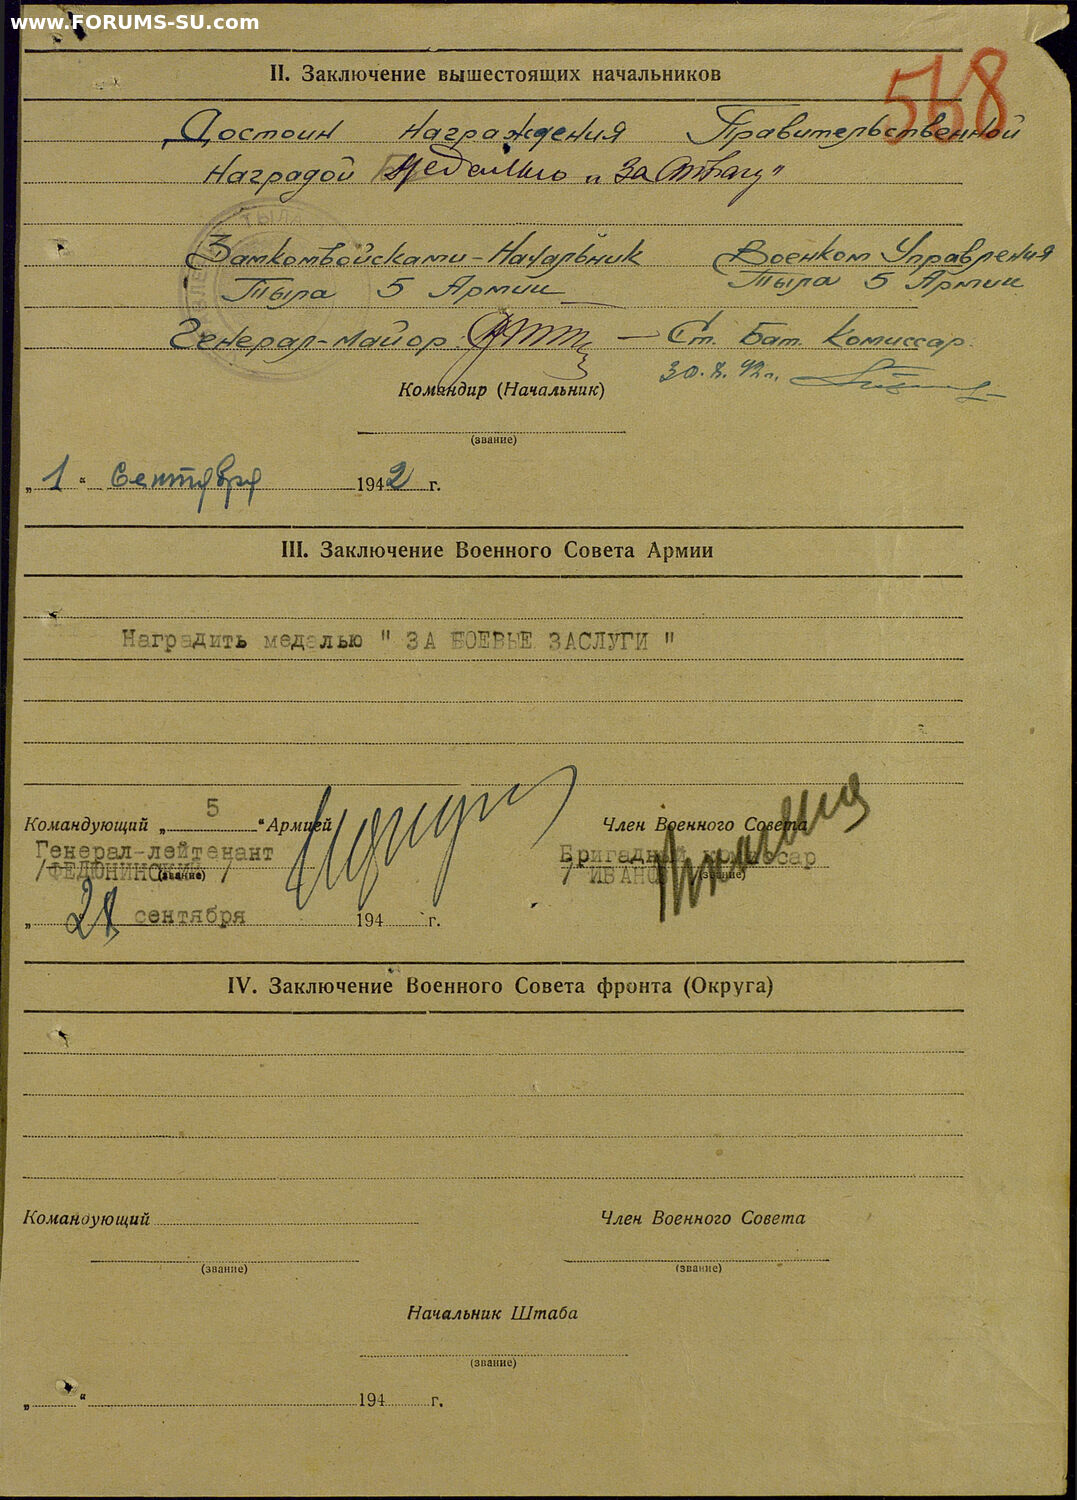 www.FORUMS-SU.com
568
II. Заключение вышестоящих начальников
Достоин награждения Правительственной
Наградой медалью „За Отвагу"
ТЫЛА
Замкомвойсками - Начальник Военком Управления
Тыла 5 Армии Тыла 5 Армии
Генерал-майор Ст. Бат. Комиссар.
Командир (Начальник)
(звание)
„1“ Сентября 1942 г.
III. Заключение Военного Совета Армии
Наградить медалью " ЗА БОЕВЫЕ ЗАСЛУГИ "
Командующий „ 5 “ Армией Член Военного Совета
Генерал-лейтенант Бригадный комиссар
/ФЕДЮНИНСКИЙ / (звание) / ИВАНОВ (звание)
„ сентября 194 г.
IV. Заключение Военного Совета фронта (Округа)
Командующий Член Военного Совета
(звание) (звание)
Начальник Штаба
(звание)
„ “ 194 г.